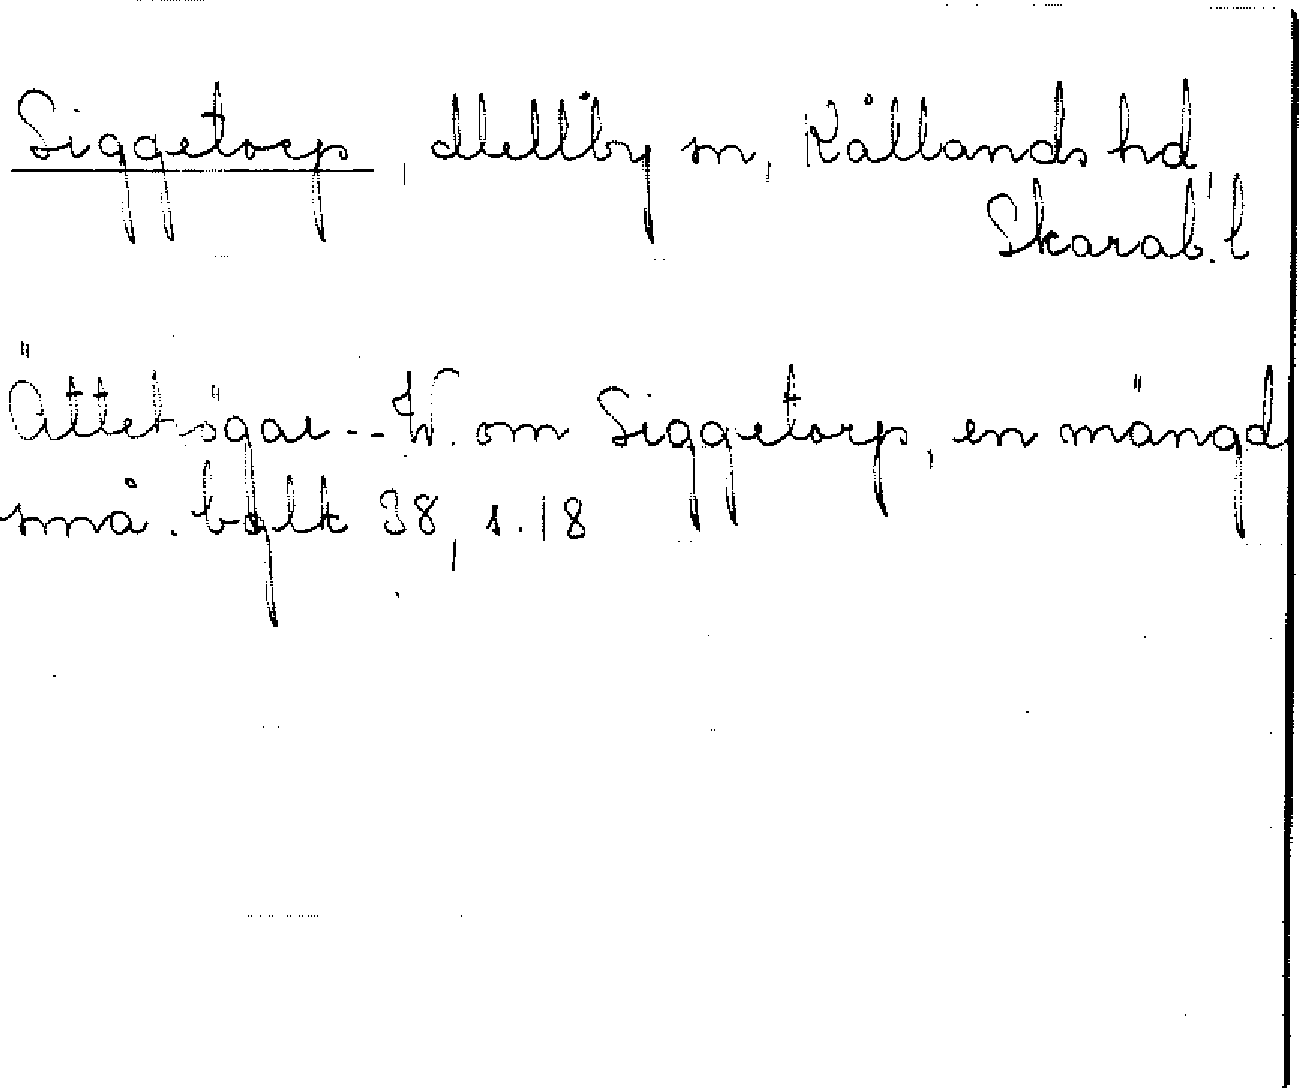 Siggetorp, Mellby sn, Kållands hd,
Skarab. l
Ättehögar -- W. om Siggetorp, en mängd
små. bylt 38, s. 18